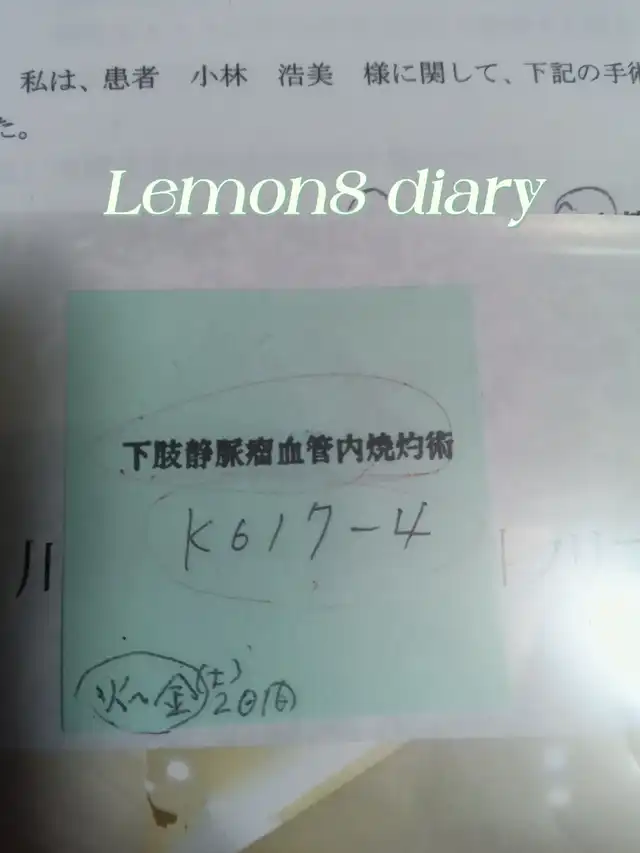 私は、患者 小林 浩美 様に関して、下記の手術
た。
Lemon8 diary
下肢静脈瘤血管内焼灼術
K617-4
火〜金(土)